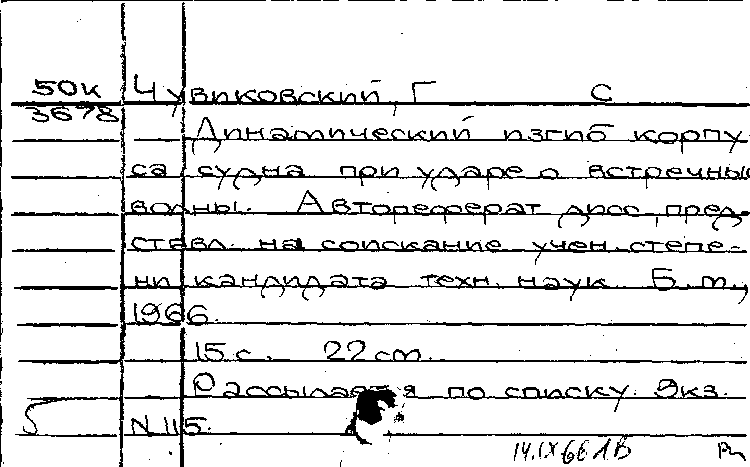 50к Чувиковский, Г С
3678
Динамический изгиб корпу-
са судна при ударе о встречные
волны. Автореферат дисс., пред-
ставл. на соискание учен. степе-
ни кандидата техн. наук. Б.м.,
1966.
15 с. 22 см.
Рассылается по списку. Экз.
5 N 115.
14.IX 66